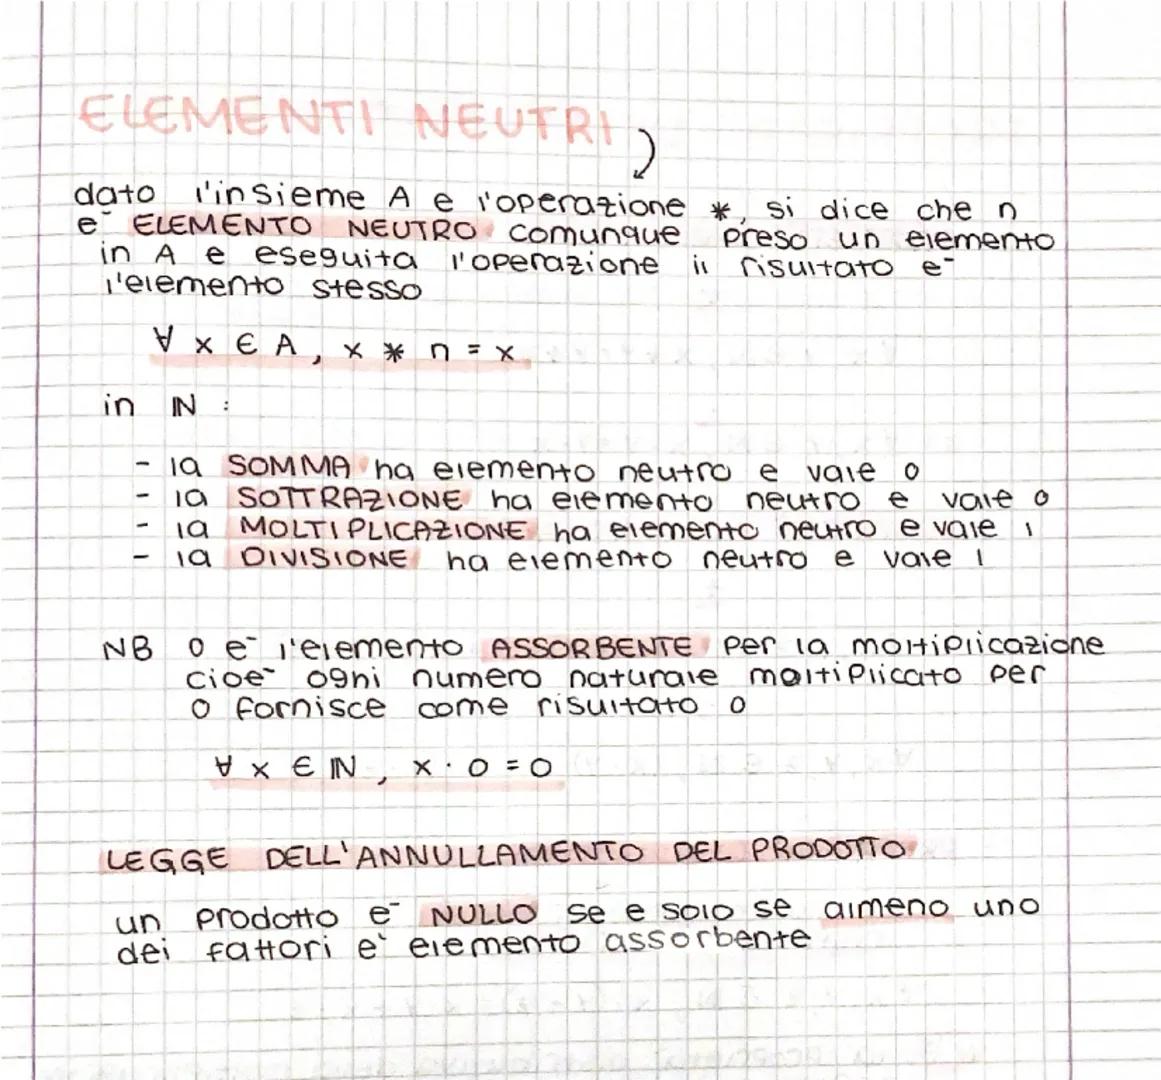 ELEMENTI NEUTRI
dato l'insieme A e l'operazione *, si dice che n
e- ELEMENTO NEUTRO comunque preso un elemento
in A e eseguita l'operazione il risultato e-
l'elemento stesso
∀ x ∈ A, x * n = x
in ℕ :
- la SOMMA ha elemento neutro e vale 0
- la SOTTRAZIONE ha elemento neutro e vale 0
- la MOLTIPLICAZIONE ha elemento neutro e vale 1
- la DIVISIONE ha elemento neutro e vale 1
NB 0 e- l'elemento ASSORBENTE per la moltiplicazione
cioe- ogni numero naturale moltiplicato per
0 fornisce come risultato 0
∀ x ∈ ℕ, x · 0 = 0
LEGGE DELL'ANNULLAMENTO DEL PRODOTTO
un prodotto e- NULLO se e solo se almeno uno
dei fattori e` elemento assorbente